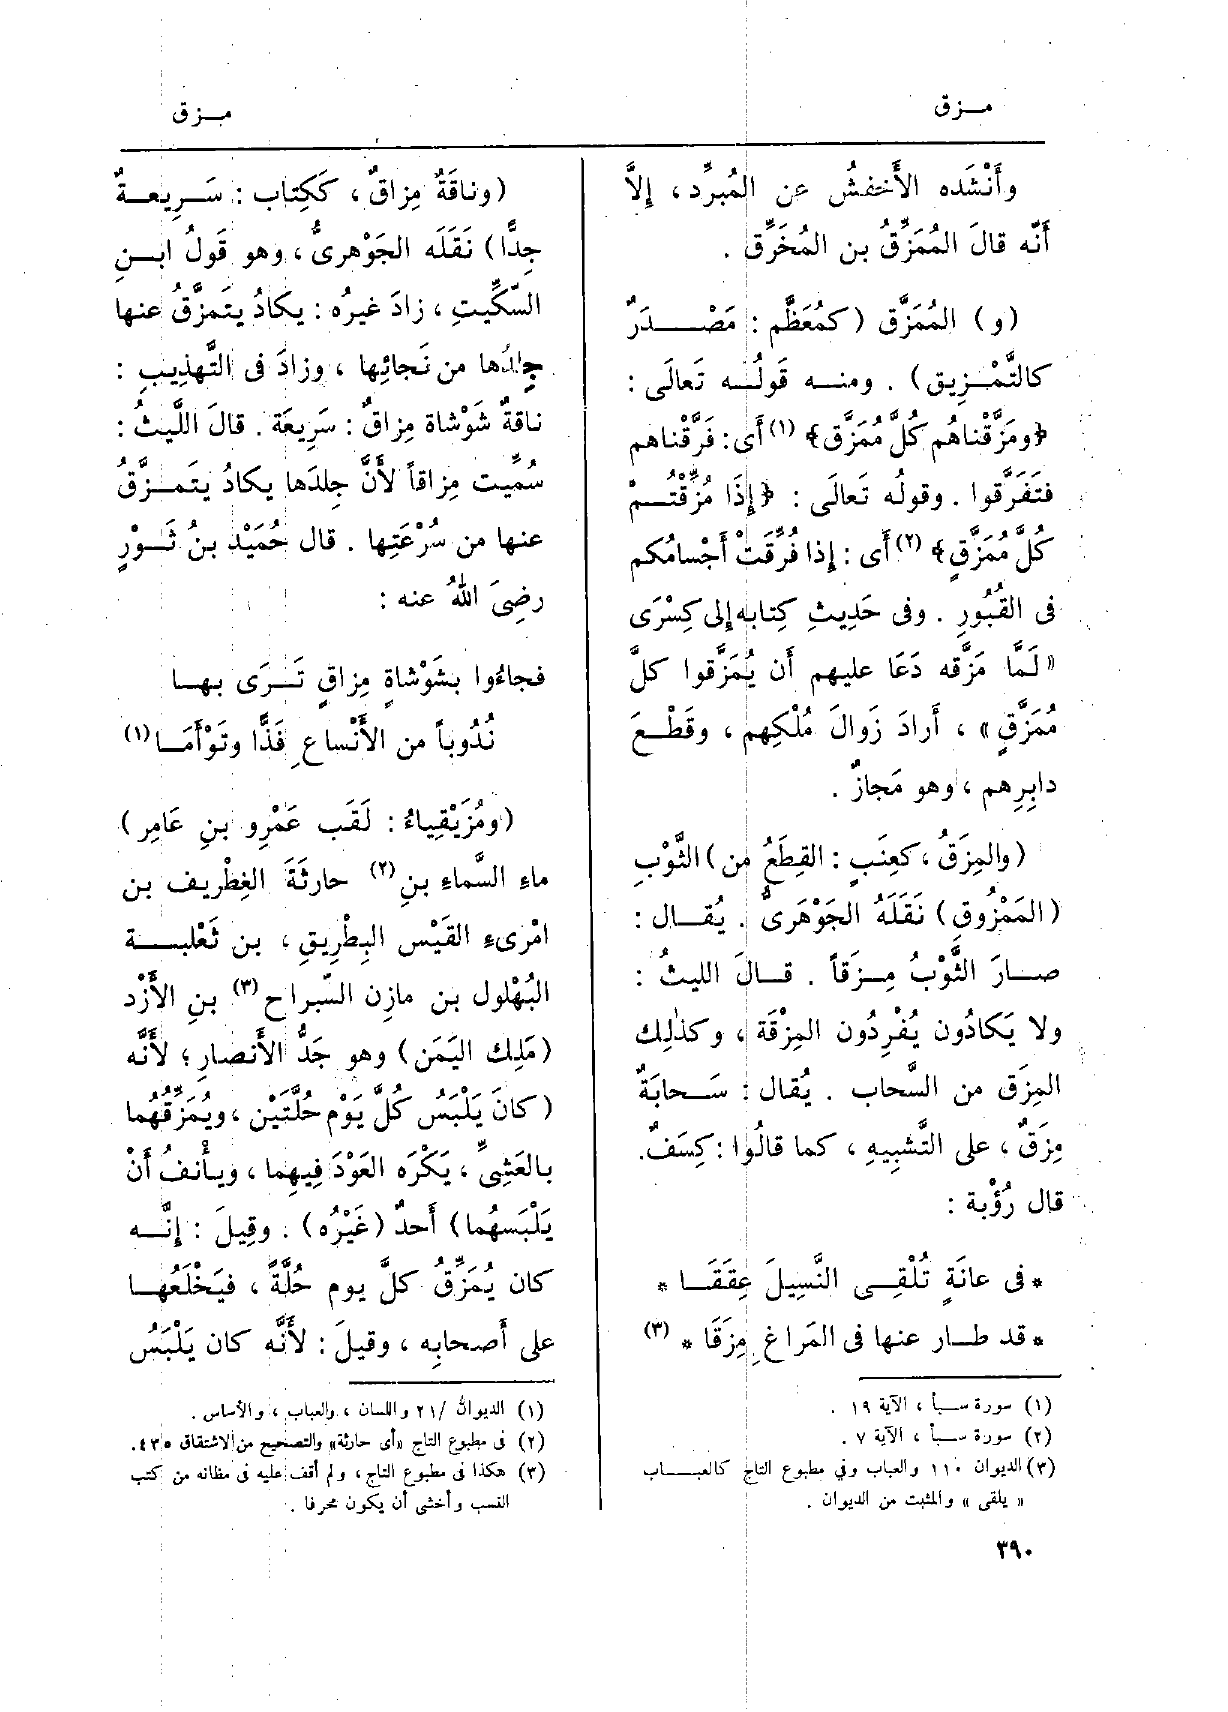 مـزق
مـزق
وأَنْشَده الأَخفشُ عن المُبرِّد ، إِلاَّ
أَنّه قالَ المُمَزِّقُ بن المُخَرِّق .
(و) المُمَزَّق (كمُعَظَّم : مَصْـدَرٌ
كالتَّمْـزِيق) . ومنـه قَولُـه تَعالَى :
﴿ومَزَّقْناهُم كُلَّ مُمَزَّق﴾ (١) أَى : فَرَّقْناهم
فتَفَرَّقوا . وقولُه تَعالَى : ﴿إِذَا مُزِّقْتُـمْ
كُلَّ مُمَزَّقٍ﴾ (٢) أَى : إِذا فُرِّقَتْ أَجْسامُكم
فى القُبُورِ . وفى حَدِيثِ كِتابه إِلى كِسْرَى
«لَمَّا مَزَّقه دَعَا عليهم أَن يُمَزَّقوا كلَّ
مُمَزَّقٍ» ، أَرادَ زَوالَ مُلْكِهم ، وقَطْـعَ
دابِرِهم ، وهو مَجازٌ .
(والمِزَقُ ، كعِنَبٍ : القِطَعُ من) الثَّوْبِ
(المَمْزُوقِ) نَقَلَهُ الجَوْهَرىُّ . يُقـال :
صـارَ الثَّوْبُ مِـزَقاً . قـالَ الليثُ :
ولا يَكادُون يُفْرِدُون المِزْقَة ، وكذٰلِك
المِزَق من السَّحاب . يُقال : سَـحابَةٌ
مِزَقٌ ، على التَّشبِيهِ ، كما قالُوا : كِسَفٌ.
قال رُؤْبة :
* فى عانَةٍ تُلْقِـى النَّسِيلَ عِقَقَـا *
* قد طـار عنها فى المَراغِ مِزَقَا * (٣)
(١) سورة سـبأ ، الآية ١٩ .
(٢) سورة سـبأ ، الآية ٧ .
(٣) الديوان ١١٠ والعباب وفي مطبوع التاج كالعبـاب
« يلقى » والمثبت من الديوان .
(وناقَةٌ مِزاقٌ ، ككِتاب : سَـرِيعـةٌ
جِدًّا) نَقَلَه الجَوْهرىُّ ، وهو قَولُ ابـنِ
السِّكِّيتِ ، زادَ غيرُه : يكادُ يتَمزَّقُ عنها
جِلدُها من نَجائِها ، وزادَ فى التَّهذِيبِ :
ناقةٌ شَوْشاة مِزاقٌ : سَرِيعَة . قالَ اللَّيثُ :
سُمِّيت مِزاقاً لأَنَّ جِلدَها يكادُ يتَمـزَّقُ
عنها من سُرْعَتِها . قال حُمَيْد بنُ ثَـوْرٍ
رضِىَ اللهُ عنه :
فجاءُوا بشَوْشاةٍ مِزاقٍ تَـرَى بهـا
نُدُوباً من الأَنْساعِ فَذًّا وتَوْأَمَـا (١)
(ومُزَيْقِياءُ : لَقَب عَمْرِو بنِ عَامِر)
ماءِ السَّماءِ بنِ (٢) حارثَةَ الغِطْرِيف بن
امْرِىءِ القَيْس البِطْرِيقِ ، بن ثَعْلبـة
البُهْلول بن مازِن السّبراح (٣) بنِ الأَزْد
(مَلِك اليَمَن) وهو جَدُّ الأَنصارِ ؛ لأَنَّه
(كانَ يَلْبَسُ كُلَّ يَوْم حُلَّتَيْن ، ويُمَزِّقُهُما
بالعَشِىِّ ، يَكْرَه العَوْدَ فِيهِما ، ويأْنفُ أَنْ
يَلْبَسَهُما) أَحدٌ (غَيْرُه) . وقِيلَ : إِنَّـه
كان يُمَزِّقُ كلَّ يوم حُلَّةً ، فيَخْلَعُهـا
على أَصحابِه ، وقيلَ : لأَنَّه كان يَلْبَسُ
(١) الديوان /٢١ واللسان ، والعباب ، والأساس .
(٢) فى مطبوع التاج «أى حارثة» والتصحيح من الاشتقاق ٤٣٥.
(٣) هكذا فى مطبوع التاج ، ولم أقف عليه فى مظانه من كتب
النسب وأخشى أن يكون محرفا .
٣٩٠